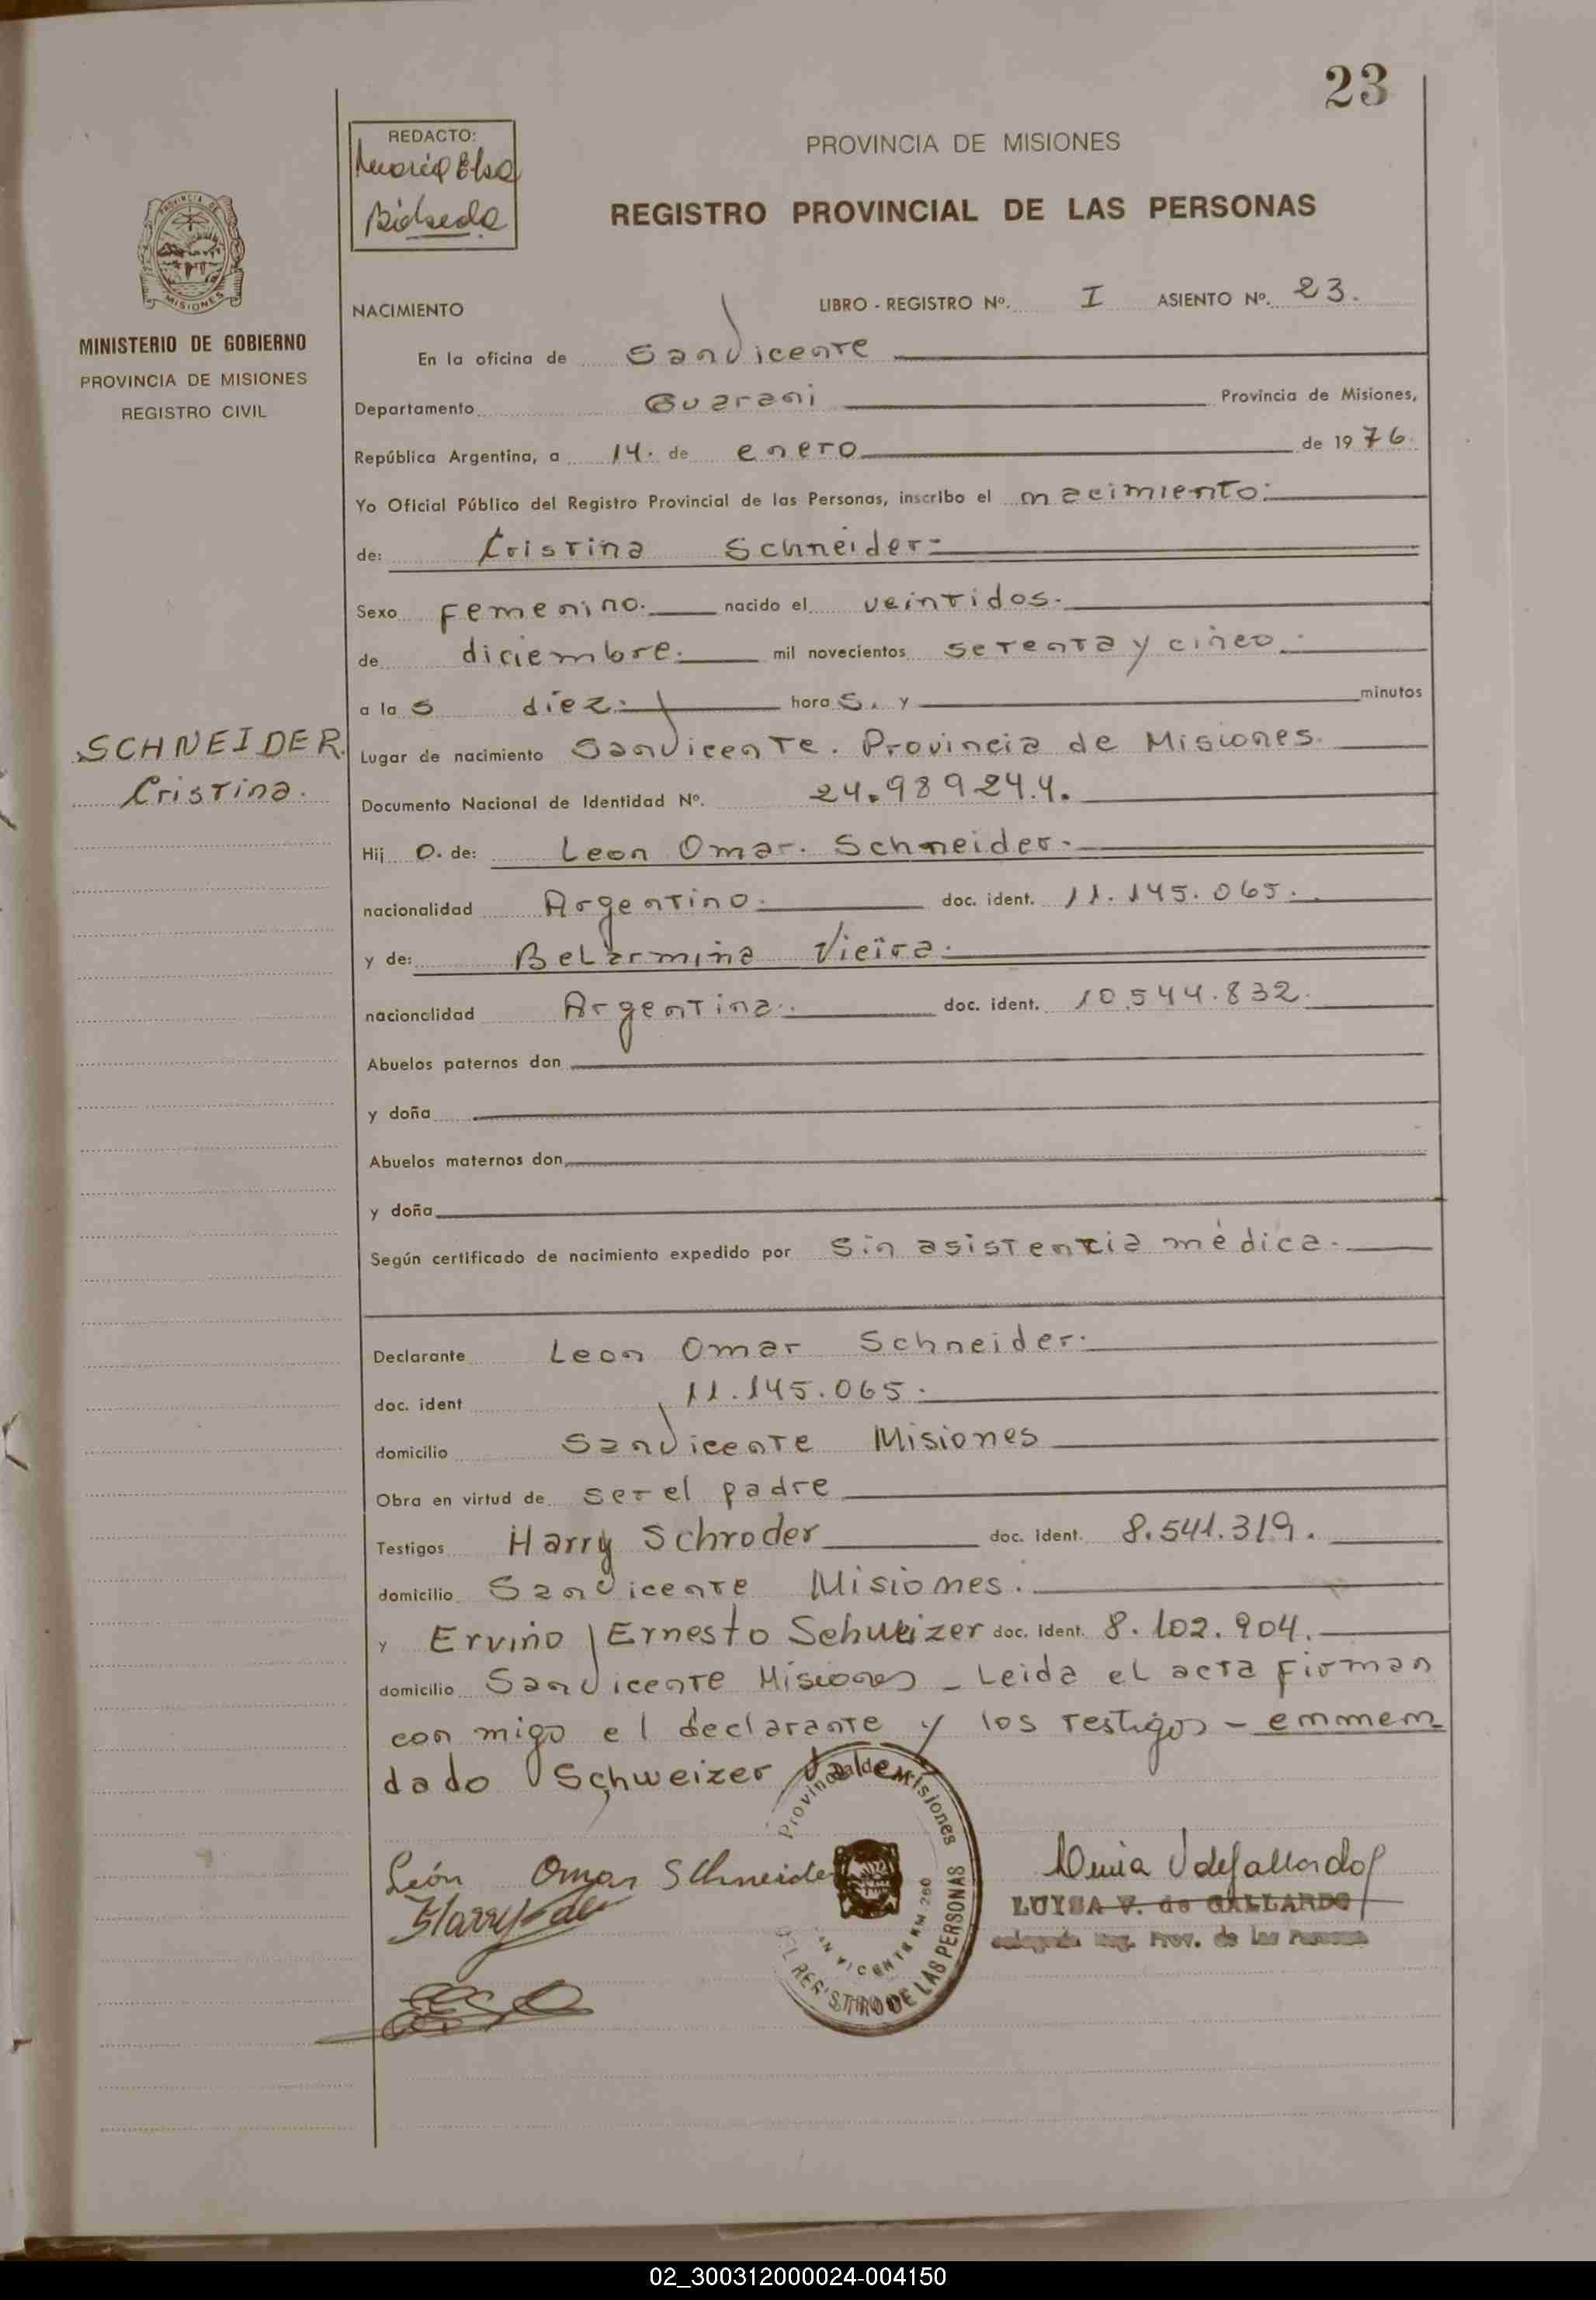 23
REDACTO:
Maria Elsa
PROVINCIA DE MISIONES
REGISTRO PROVINCIAL DE LAS PERSONAS
PROVINCIA DE
MISIONES
MINISTERIO DE GOBIERNO
PROVINCIA DE MISIONES
REGISTRO CIVIL
NACIMIENTO LIBRO - REGISTRO Nº. I ASIENTO Nº. 23.
En la oficina de San Vicente
Departamento Guarani Provincia de Misiones,
República Argentina, a 14. de enero de 1976.
Yo Oficial Público del Registro Provincial de las Personas, inscribo el nacimiento.
de: Cristina Schneider.
Sexo femenino. nacido el veintidos.
de diciembre. mil novecientos setenta y cinco.
a las diez. horas. y minutos
SCHNEIDER.
Cristina.
Lugar de nacimiento San Vicente. Provincia de Misiones.
Documento Nacional de Identidad Nº. 24.989244.
Hij o. de: Leon Omar. Schneider.
nacionalidad Argentino. doc. ident. 11.145.065.
y de: Belarmina Vieira.
nacionalidad Argentina. doc. ident. 10.544.832.
Abuelos paternos don
y doña
Abuelos maternos don
y doña
Según certificado de nacimiento expedido por sin asistencia médica.
Declarante Leon Omar Schneider.
doc. ident 11.145.065.
domicilio San Vicente Misiones
Obra en virtud de ser el padre
Testigos Harry Schroder doc. ident. 8.541.319.
domicilio San Vicente Misiones.
y Ervino Ernesto Schweizer doc. ident. 8.102.904.
domicilio San Vicente Misiones - Leida el acta firman
con migo el declarante y los testigos - emmem
dado Schweizer Vale
Provincia de Misiones
DEL REGISTRO DE LAS PERSONAS
SAN VICENTE KM 260
León Omar Schneider
LUISA V. de GALLARDO
Reg. Prov. de las Personas
02_300312000024-004150